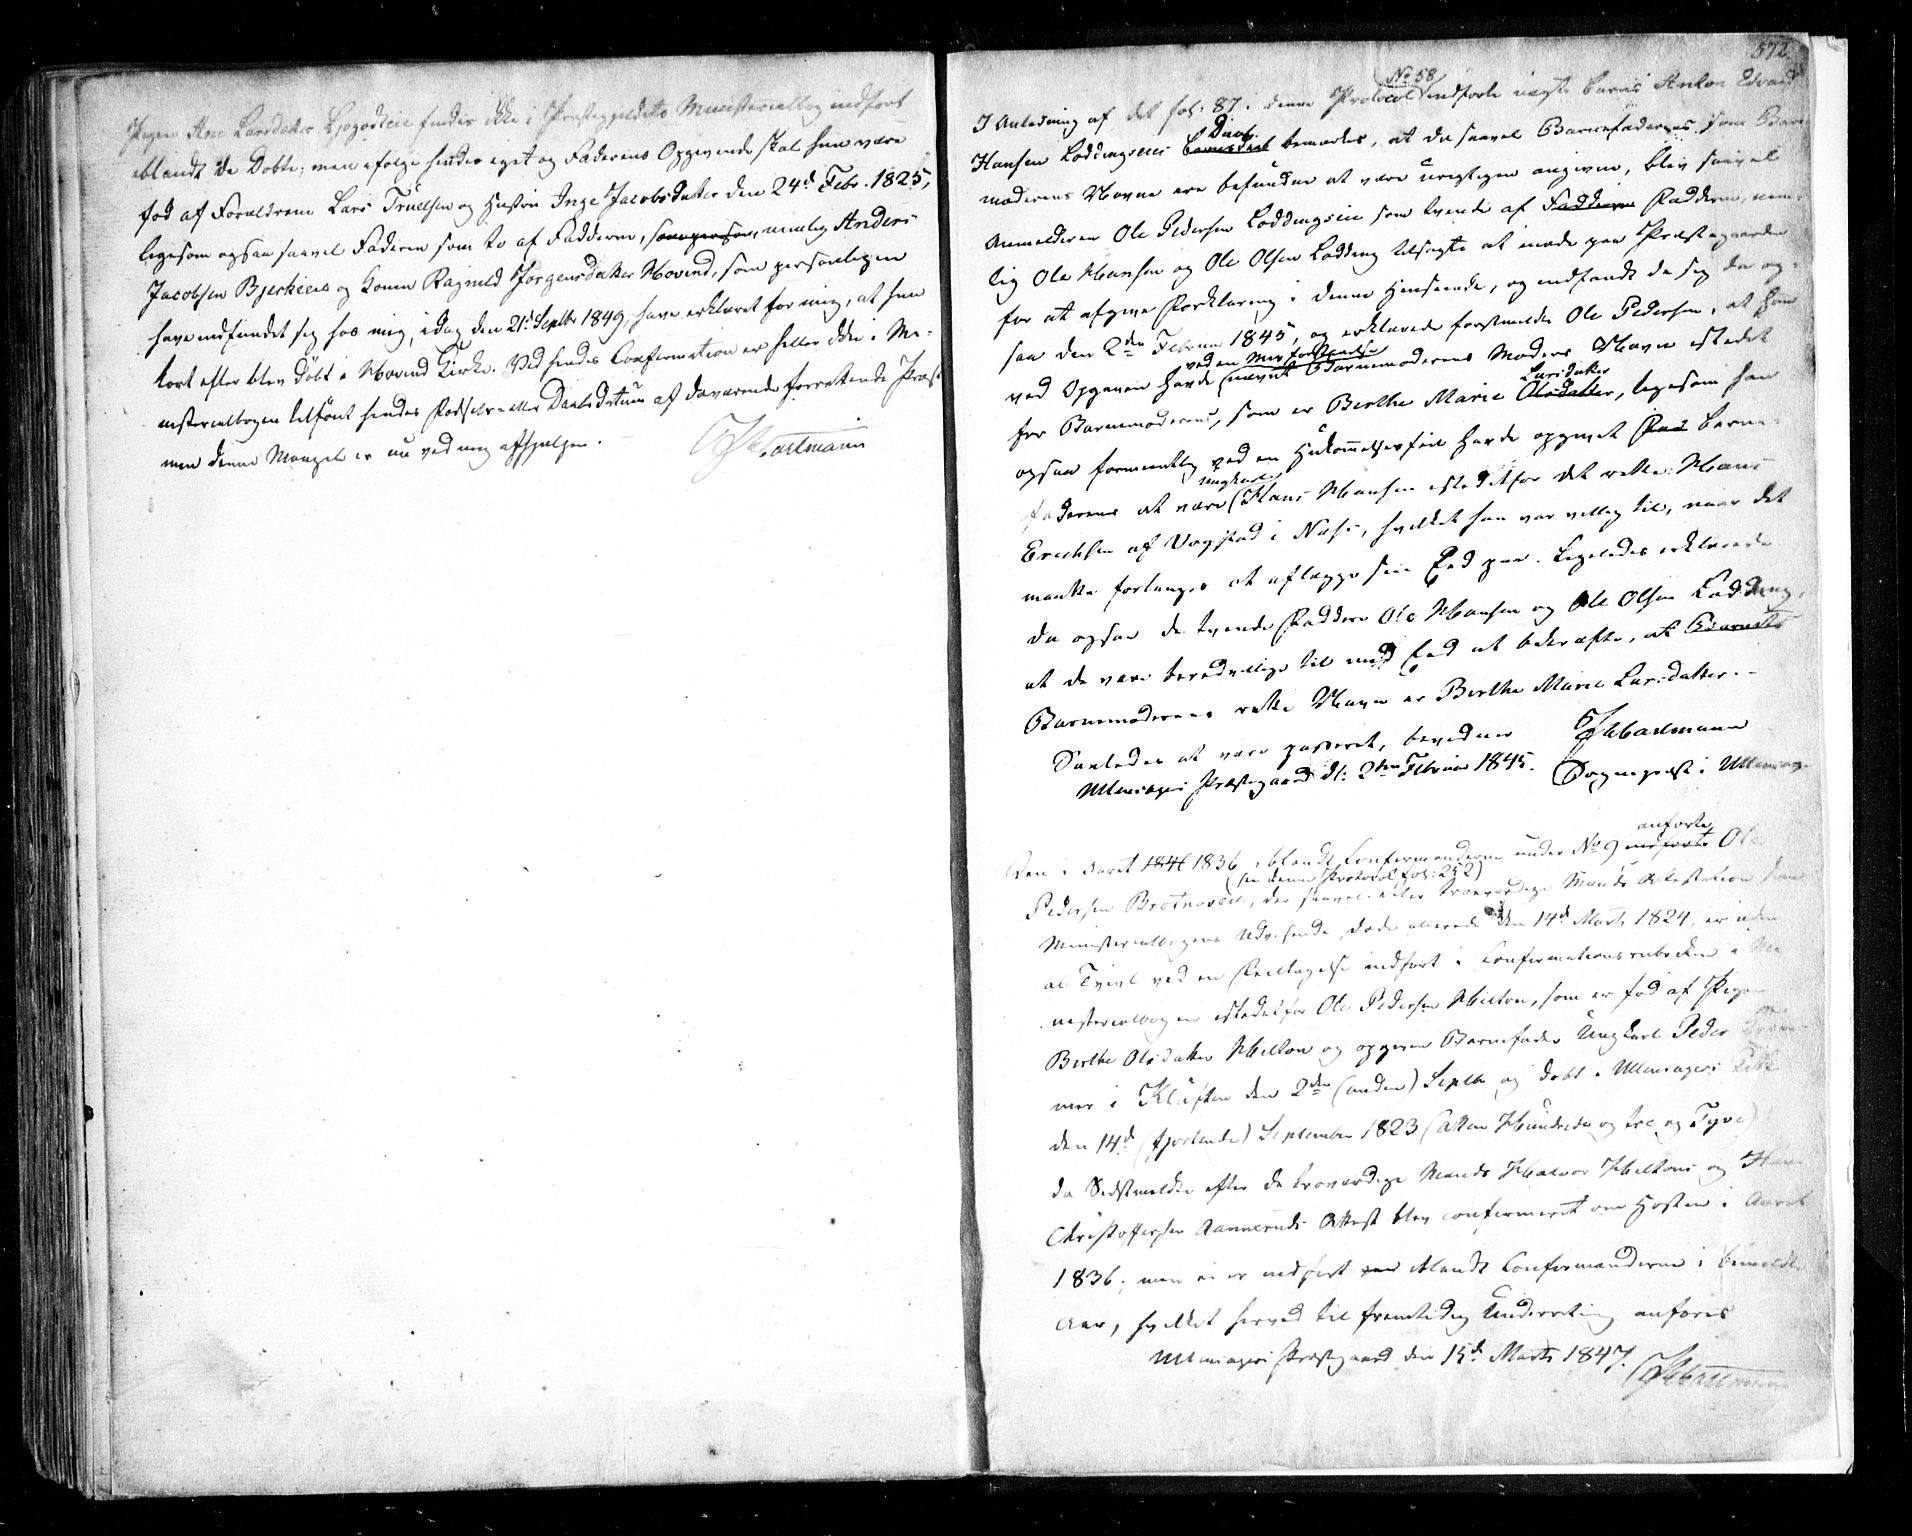 Pigen Ane Larsdatter Ljøgodteie findes ikke i Præstegjeldets Ministerialbog indført
iblandt de Døbte; men ifølge hendes eget og Faderens Opgivende skal hun være
fød af Forældrene Lars Truelsen og Hustru Inge Jacobsdatter den 24d Febr. 1825,
ligesom ogsaa saavel Faderen som to af Fadderne, nemlig Anders
Jacobsen Bjerkeeie og Konen Ragnild Jørgensdatter Hovind, som personligen
have indfundet sig hos mig, idag den 21d Septbr 1849, have erklæret for mig, at hun
kort efter blev døbt i Hovind Kirke. Ved hendes Confirmation er heller ikke i Mi-
nisterialbogen tilføiet hendes Fødsels- eller Daabsdatum af daværende forrettende Præst
men denne Mangel er nu ved mig afhjulpen.
Hartmann
572.
No 58
I Anledning af det fol: 87. denne Protocol indførte uægte Barns Anton Edvard
Daab
Hansen Løddingseies bemærkes, at da saavel Barnefaderens som Barne-
moderens Navne ere befundne at være urigtigen angivne, blev saavel
Anmelderen Ole Pedersen Løddingseie som tvende af Fadderne Fadderne, nem-
lig Ole Hansen og Ole Olsen Lødding tilsagte at møde paa Præstegaarden
for at afgive Forklaring i denne Henseende, og indfandt de sig da og-
saa den 2den Februar 1845, og erklærede førstmeldte Ole Pedersen, at han
ved en Misforstaaelse
ved Opgaven havde nævnt Barnemoderens Moders Navn istedet
Larsdatter
for Barnemoderens, som er Berthe Marie Olsdatter, ligesom han
ogsaa formeentlig ved en Hukommelsesfeil havde opgivet Barne-
ungkarl
faderens at være Hans Hansen istedetfor det rette: Hans
Erichsen af Vogstad i Næs, hvilket han var villig til, naar det
maatte forlanges at aflægge sin Eed paa. Ligeledes erklærede
da ogsaa de tvende Faddere Ole Hansen og Ole Olsen Lødding,
at de vare beredvillige til med Eed at bekræfte, at Barnets
Barnemoderens rette Navn er Berthe Marie Larsdatter. -
Saaledes at være passeret, bevidner Hartmann
Ullensagers Præstegaard d: 2den Februar 1845. Sognepræst i Ullensager
anførte
Den i Aaret 1846 1836 iblandt Confirmanderne under No 9 indførte Ole
(see denne Protocol fol: 252)
Pedersen Brotnoveie, der saavel efter troværdige Mænds Attestation som
Ministerialbogens Udvisende, døde allerede den 14d Marts 1824, er uden
al Tvivl ved en Feiltagelse indført i Confirmationsrubriken i Mi-
nisterialbogen istedetfor Ole Pedersen Hilton, som er fød af Pigen
Berthe Olsdatter Hilton og opgiven Barnefader Ungkarl Peder
mer i Kløften den 2den (anden) Septbr og døbt i Ullensagers Kirke
den 14d (fjortende) September 1823 (Atten Hundrede og tre og Tyve)
da Sidstmeldte efter de troværdige Mænds Halvor Hiltons og
Christoffersen Aannerruds Attest blev confirmeret om Høsten i Aaret
1836; men ei er indført iblandt Confirmanderne i bemeldte
Aar, hvilket herved til fremtidig Underretning anføres
Ullensagers Præstegaard den 15d Marts 1847.
Hartmann